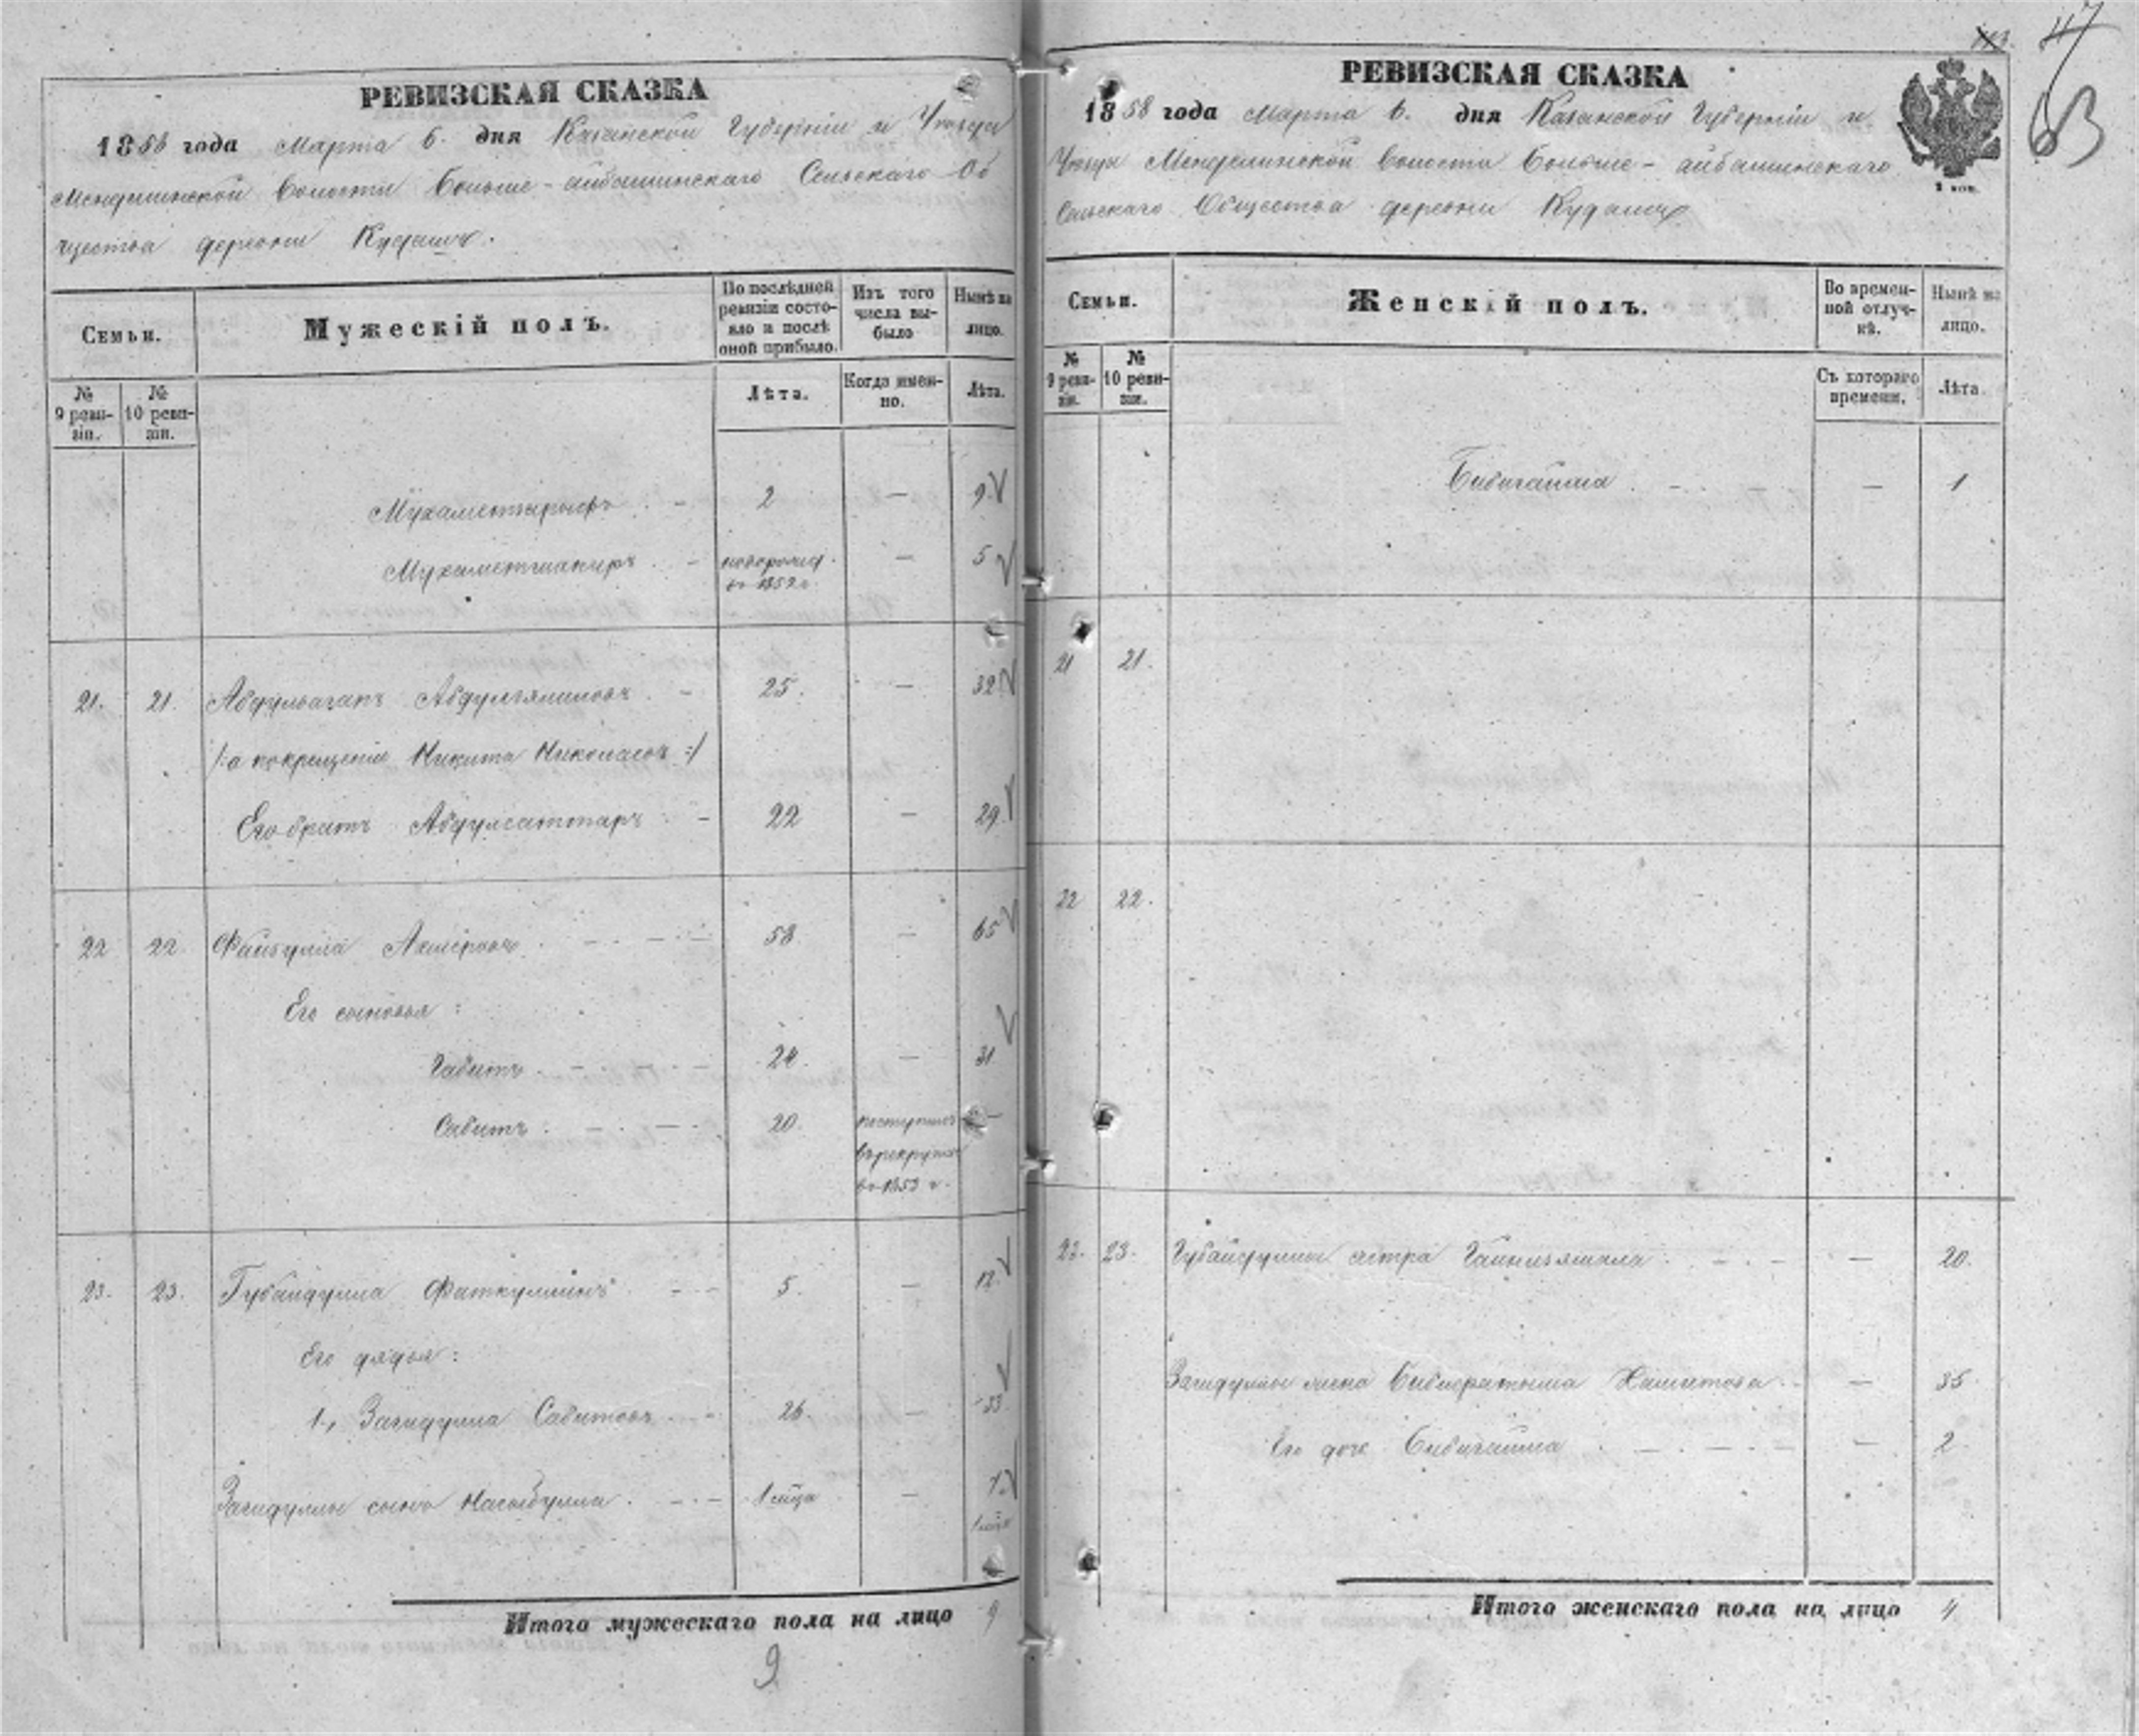 РЕВИЗСКАЯ СКАЗКА
1858 года Марта 6. дня Казанской Губерніи и Уѣзда
Менгерминской волости Больше-айбашинскаго Сельскаго Об
щества деревни Кудашъ.
Семьи.
Мужескій полъ.
По послѣдней ревизіи состояло и послѣ оной прибыло.
Изъ того числа выбыло
Нынѣ на лицо.
№ 9 ревизіи.
№ 10 ревизіи.
Лѣта.
Когда именно.
Лѣта.
Мухаметшарыфъ - 2 — 9
Мухаметшакиръ - новорожд. въ 1852 г. — 5
21. 21. Абдулвагапъ Абдулгялимовъ - 25. — 32
/:а покрещеніи Никита Николаевъ:/
Его братъ Абдулсаттаръ - 22 — 29
22 22. Файзулла Акмеровъ 58 — 65
Его сыновья:
Габитъ 24. — 31
Сабитъ 20. поступилъ —
въ рекруты
въ 1853 г.
23. 23. Губайдулла Фаткуллинъ 5. — 12
Его дядья:
1, Загидулла Сабитовъ 26. — 33
Загидуллы сынъ Насыбулла 1 мѣца — 7
1 мѣца
Итого мужескаго пола на лицо 9
9
113.
47
63
РЕВИЗСКАЯ СКАЗКА
1858 года Марта 6. дня Казанской Губерніи и
Уѣзда Менгерминской волости Больше-айбашинскаго
Сельскаго Общества деревни Кудашъ
1 коп.
Семьи.
Женскій полъ.
Во временной отлучкѣ.
Нынѣ на лицо.
№ 9 ревизіи.
№ 10 ревизіи.
Съ котораго времени.
Лѣта.
Бибигайша — 1
21 21.
22 22.
23. 23. Губайдуллы сестра Гайнизямала — 20.
Загидуллы жена Бибифатыма Хамитова — 35
Его дочь Бибигайша — 2
Итого женскаго пола на лицо 4